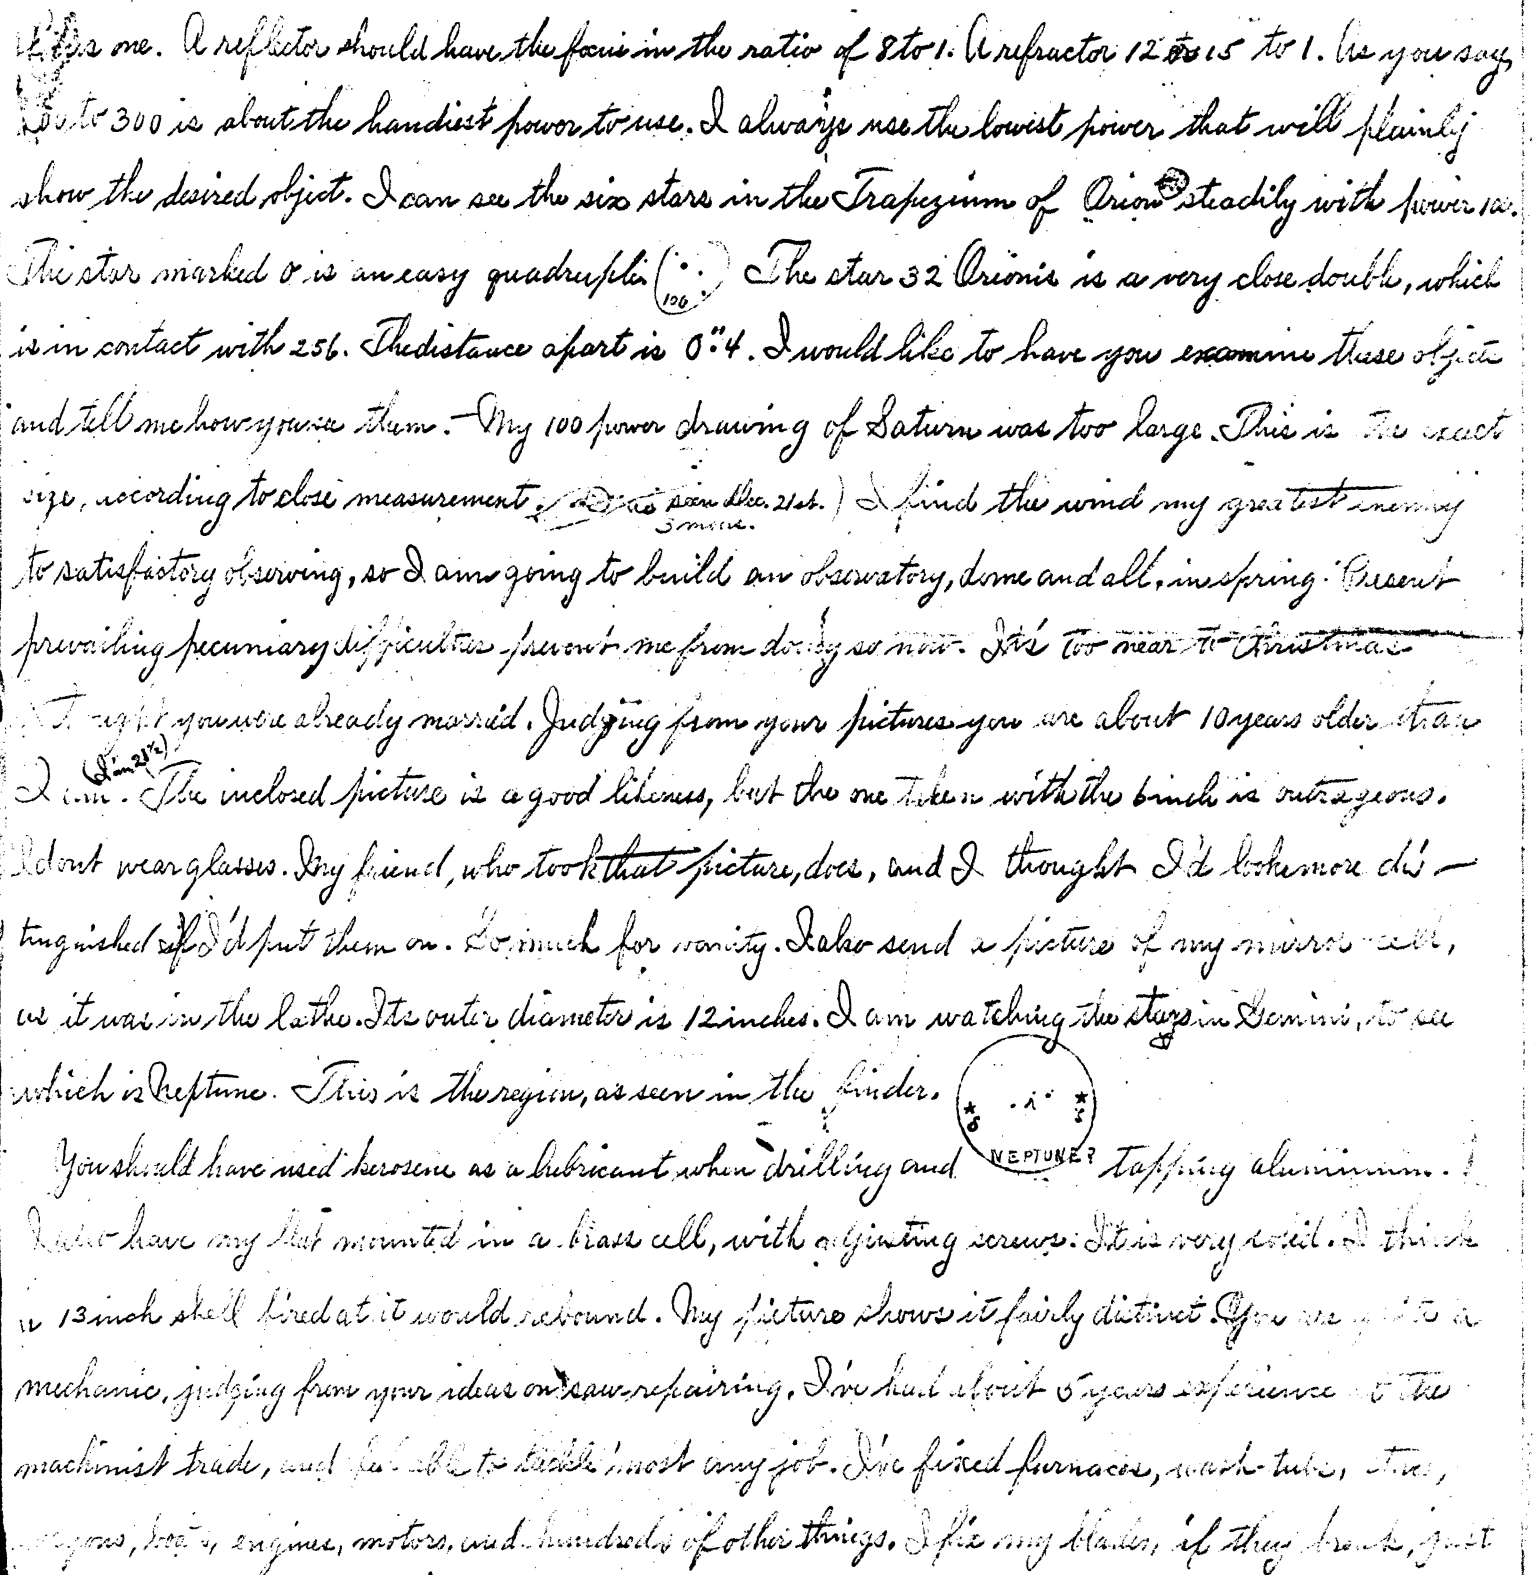 me. A reflector should have the focus in the ratio of 8 to 1. A refractor 12 to 15 to 1. As you say,
to 300 is about the handiest power to use. I always use the lowest power that will plainly
show the desired object. I can see the six stars in the Trapezium of Orion steadily with power 100.
The star marked σ is an easy quadruple. (106) The star 32 Orionis is a very close double, which
is in contact with 256. The distance apart is 0".4. I would like to have you examine these objects
and tell me how you see them. — My 100 power drawing of Saturn was too large. This is the exact
size, according to close measurement. (as seen Dec. 21st.) I find the wind my greatest enemy
3 moons.
to satisfactory observing, so I am going to build an observatory, dome and all, in spring. Present
prevailing pecuniary difficulties prevent me from doing so now. It's too near to Christmas
I thought you were already married. Judging from your pictures you are about 10 years older than
(I'm 21½)
I am. The inclosed picture is a good likeness, but the one taken with the 6 inch is outrageous.
I dont wear glasses. My friend, who took that picture, does, and I thought I'd look more dis-
tinguished if I'd put them on. So much for vanity. I also send a picture of my mirror cell,
as it was in the lathe. Its outer diameter is 12 inches. I am watching the stars in Gemini, to see
which is Neptune. This is the region, as seen in the finder.
NEPTUNE?
You should have used kerosene as a lubricant when drilling and tapping aluminum.
I also have my flat mounted in a brass cell, with adjusting screws. It is very solid. I think
a 13 inch shell fired at it would rebound. My picture shows it fairly distinct. You are quite a
mechanic, judging from your ideas on saw repairing. I've had about 5 years experience at the
machinist trade, and feel able to tackle 'most any job. I've fixed furnaces, wash-tubs,
wagons, boats, engines, motors, and hundreds of other things. I fix my blades, if they break, just